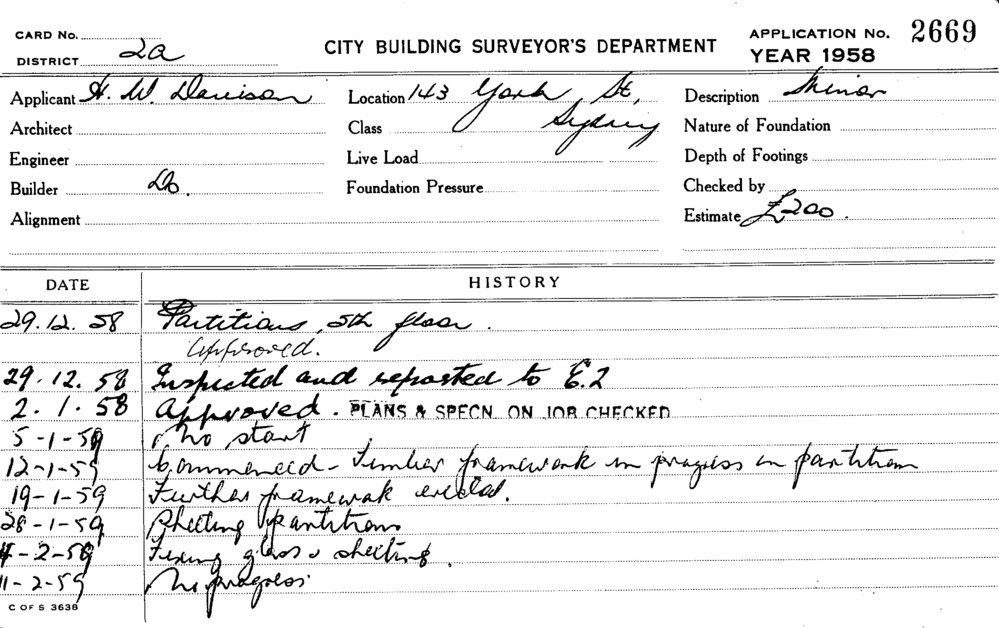 CARD No.
DISTRICT 2a
CITY BUILDING SURVEYOR'S DEPARTMENT
APPLICATION No. 2669
YEAR 1958
Applicant H. W. Davison Location 143 York St, Sydney Description Minor
Architect Class Nature of Foundation
Engineer Live Load Depth of Footings
Builder Do. Foundation Pressure Checked by
Alignment Estimate £200.
DATE HISTORY
29.12.58 Partitions, 5th floor.
Approved.
29.12.58 Inspected and reported to E.2
2.1.58 Approved. PLANS & SPECN. ON JOB CHECKED
5-1-59 No start
12-1-59 Commenced - Timber framework in progress in partition
19-1-59 Further framework erected.
28-1-59 Sheeting partitions
4-2-59 Fixing glass & sheeting.
11-2-59 No progress
C OF S 3638